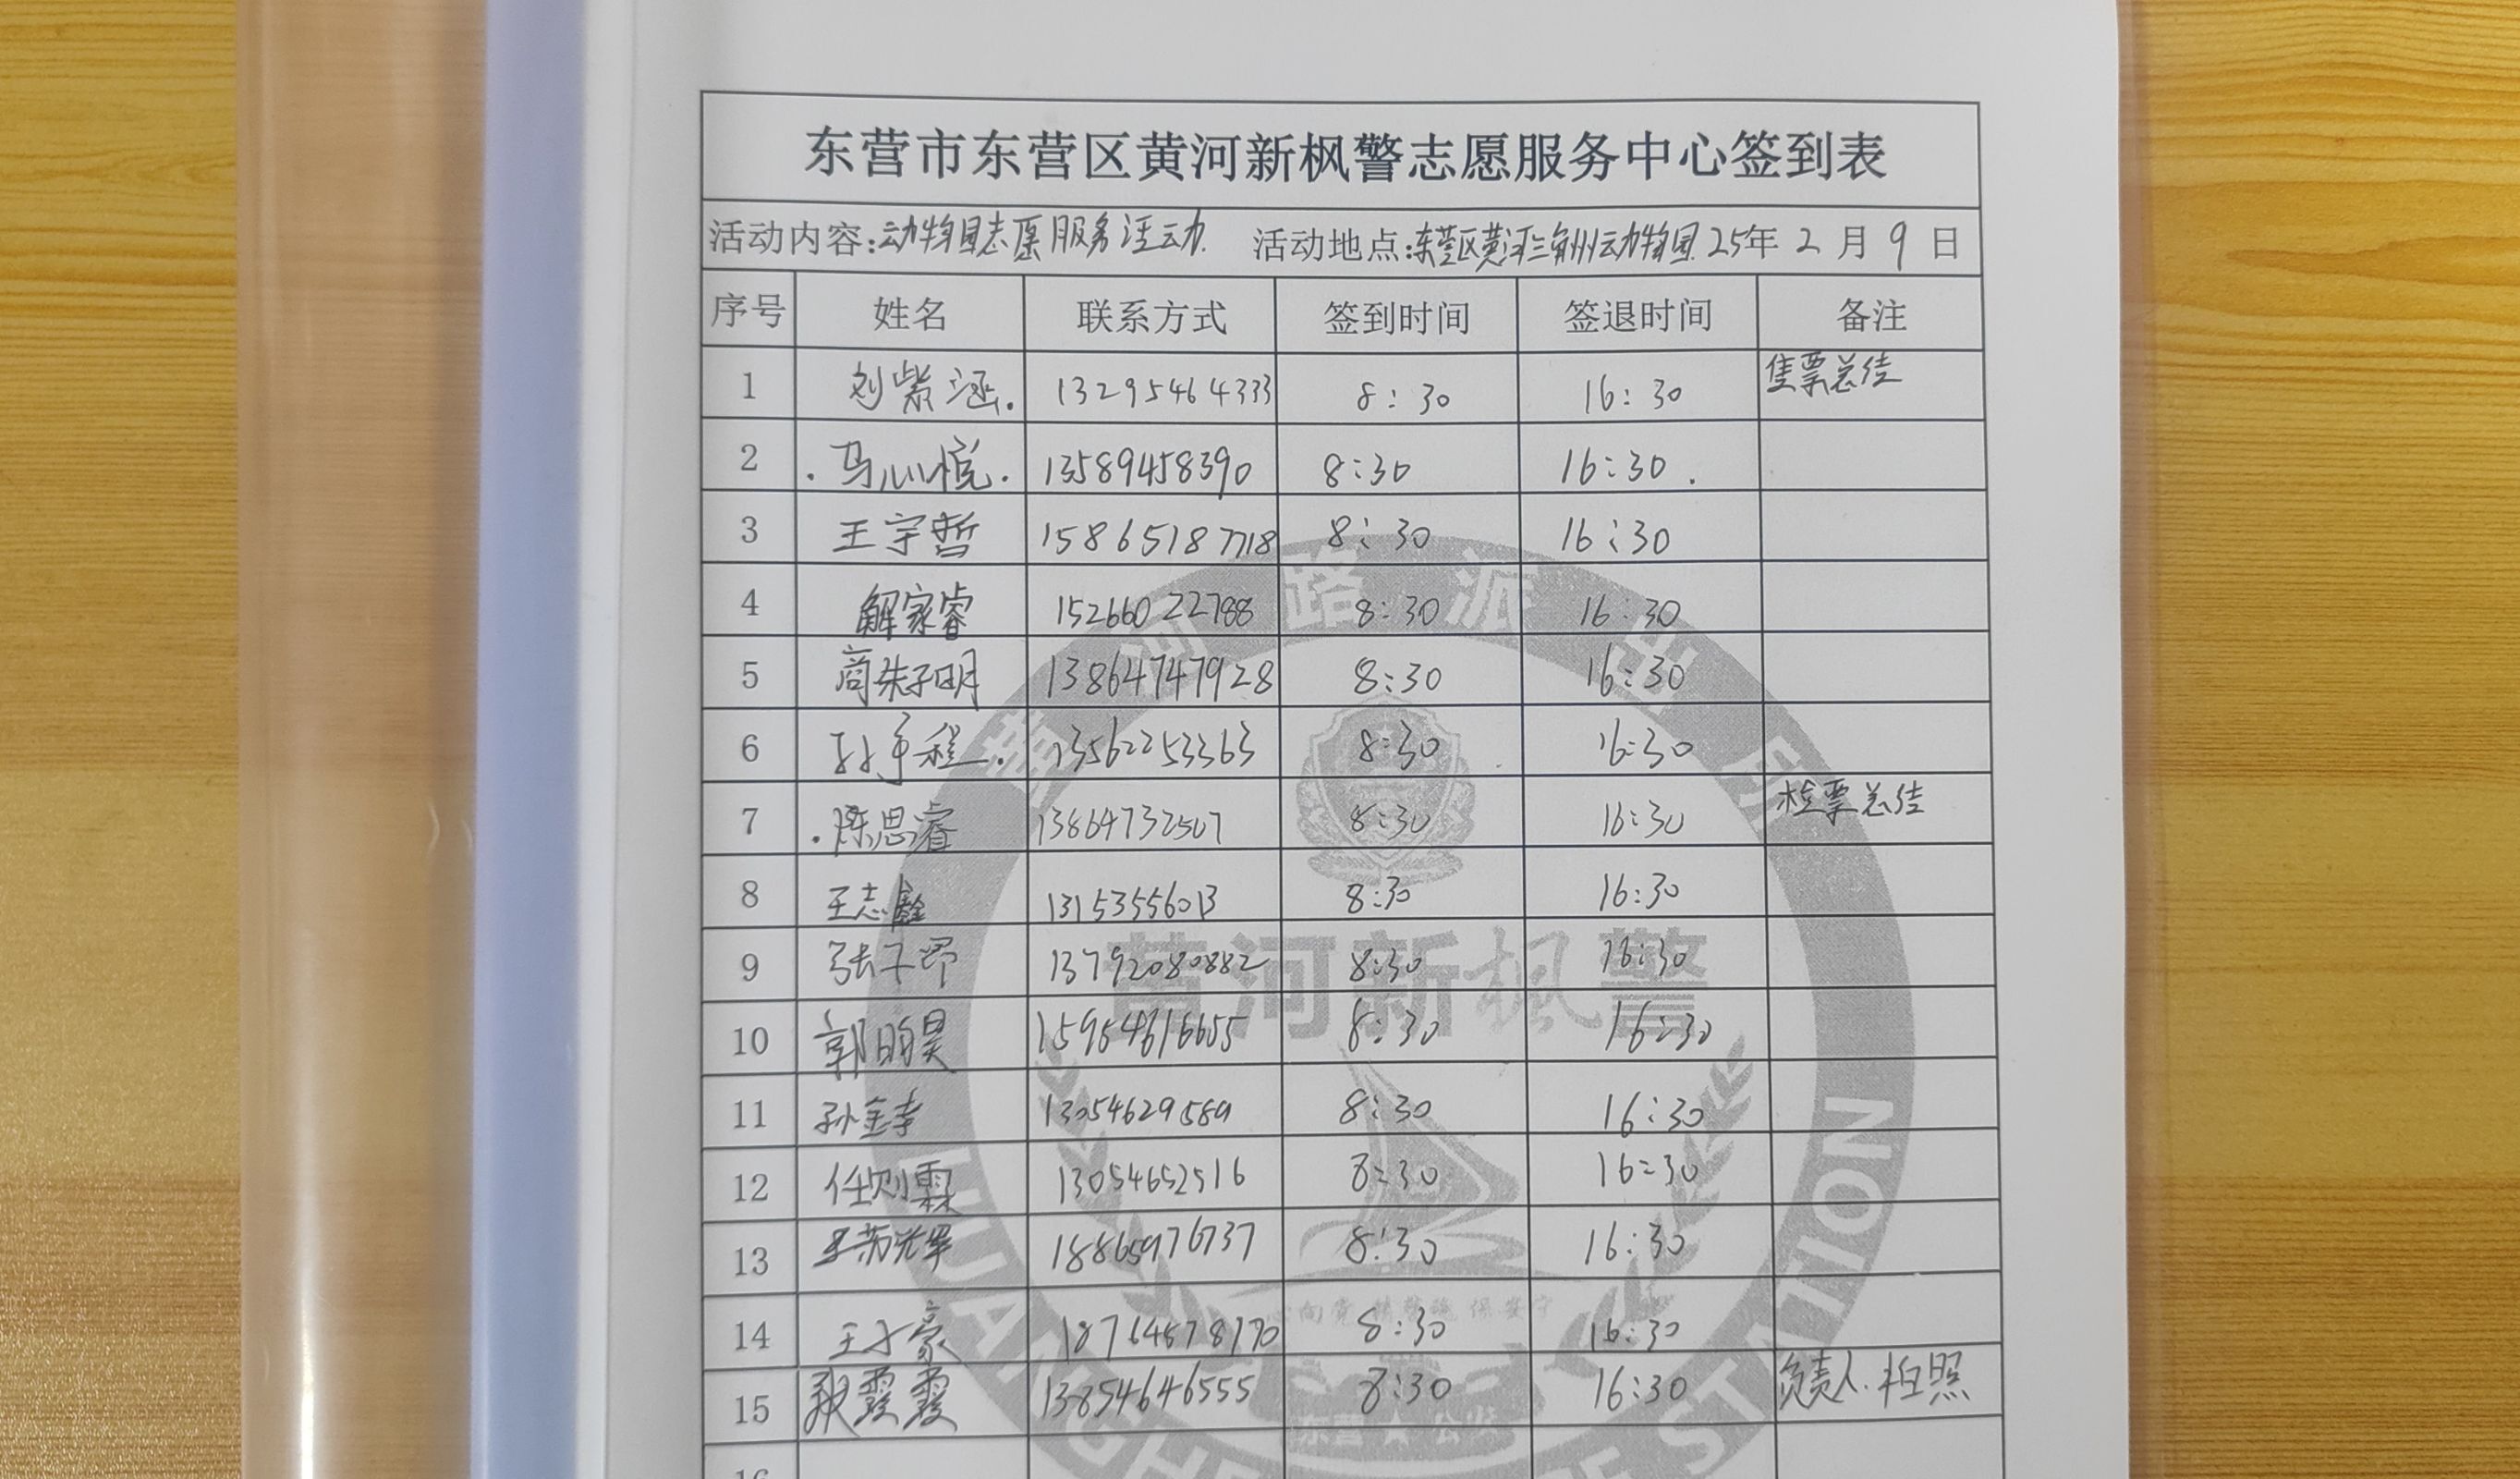 东营市东营区黄河新枫警志愿服务中心签到表
活动内容:动物园志愿服务活动 活动地点:东营区黄河三角洲动物园 25年 2 月 9 日
序号 姓名 联系方式 签到时间 签退时间 备注
1 刘紫涵. 13295464333 8:30 16:30 售票总结
2 .马心悦. 13589458390 8:30 16:30.
3 王宇哲 15865187718 8:30 16:30
4 解家睿 15266022788 8:30 16:30
5 商朱子明 13864747928 8:30 16:30
6 13562253363 8:30 16:30
7 .陈思睿 13864732507 8:30 16:30 检票总结
8 王志 13153556013 8:30 16:30
9 张子 13792080882 8:30 16:30
10 郭明昊 15954616655 8:30 16:30
11 孙 8:30 16:30
12 任则霖 13054652516 8:30 16:30
13 18865976737 8:30 16:30
14 王子豪 18764578170 8:30 16:30
15 霞霞 13854646555 8:30 16:30 负责人.拍照
16
黄河路派出所
黄河新枫警
HUANGHE STATION